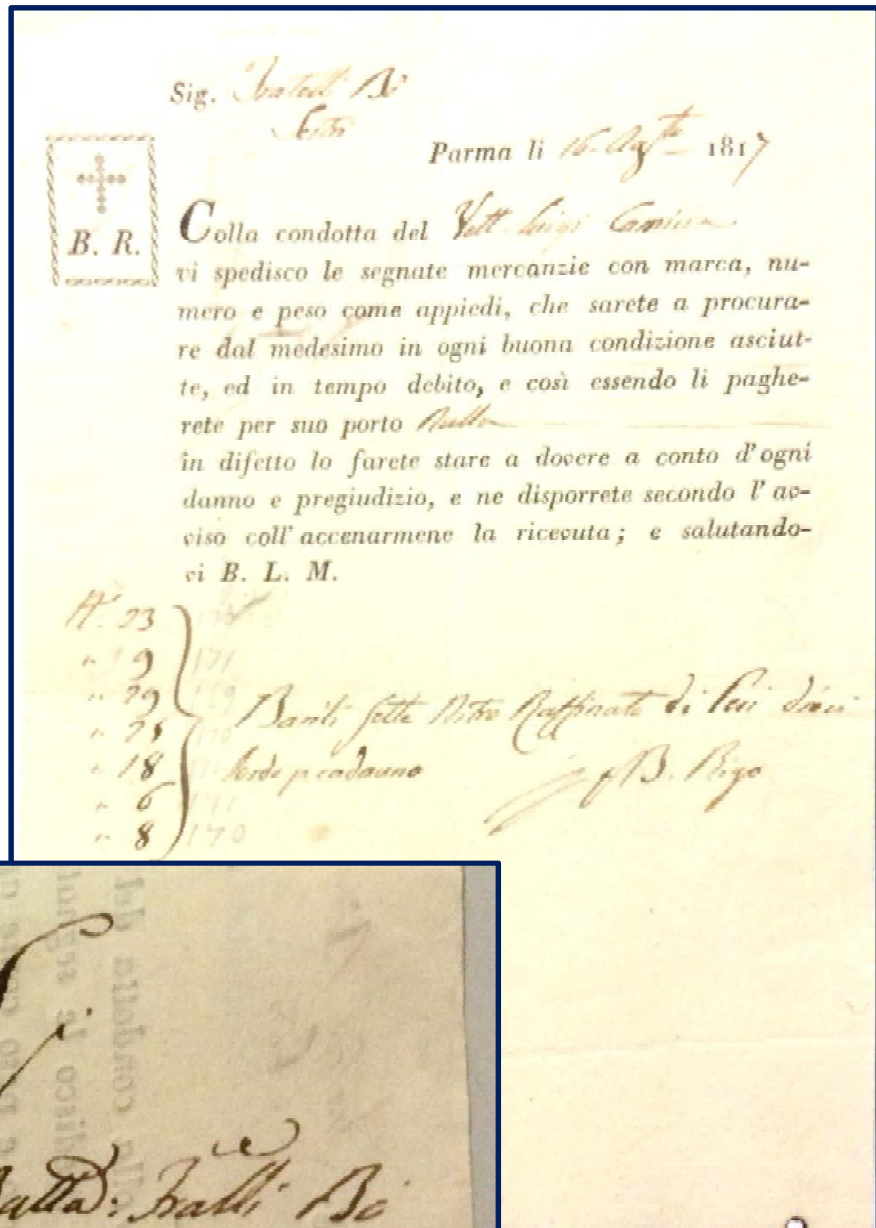 Sig. Fratelli Bò
Parma li 16. Agto 1817
B. R.
Colla condotta del Vett. Luigi
vi spedisco le segnate mercanzie con marca, nu-
mero e peso come appiedi, che sarete a procura-
re dal medesimo in ogni buona condizione asciut-
te, ed in tempo debito, e così essendo li paghe-
rete per suo porto Nulla
in difetto lo farete stare a dovere a conto d'ogni
danno e pregiudizio, e ne disporrete secondo l'av-
viso coll'accenarmene la ricevuta; e salutando-
vi B. L. M.
N. 23
" 9 171
" 29 169
" 25 170
" 18
" 6 171
" 8 170
Barili sette Nitro Raffinato di Pesi dieci
lordo p cadauno B. Rigo
olla condotta del
disco le segnat
Fratlli Bò